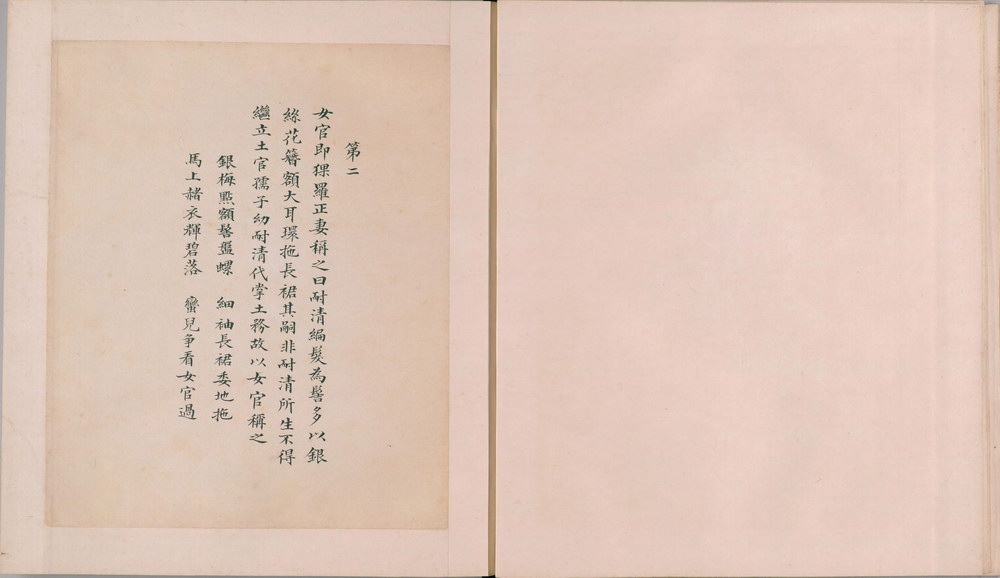 第二
女官即猓羅正妻稱之曰耐清編髮為髻多以銀
絲花簪額大耳環拖長裙其嗣非耐清所生不得
繼立土官孺子幼耐清代掌土務故以女官稱之
銀梅點額髻盤螺 細袖長裙委地拖
馬上赭衣輝碧落 蠻兒爭看女官過